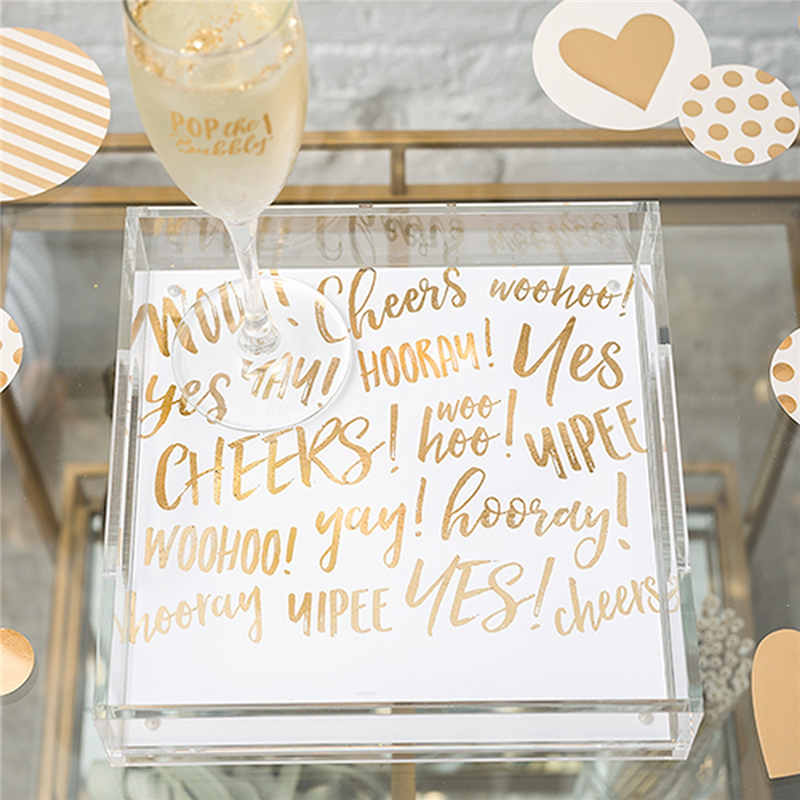 POP the
Bubbly!
WOO! Cheers woohoo!
yes YAY! HOORAY! Yes
CHEERS! woo hoo! YIPEE
WOOHOO! yay! hooray!
hooray YIPEE YES! cheers